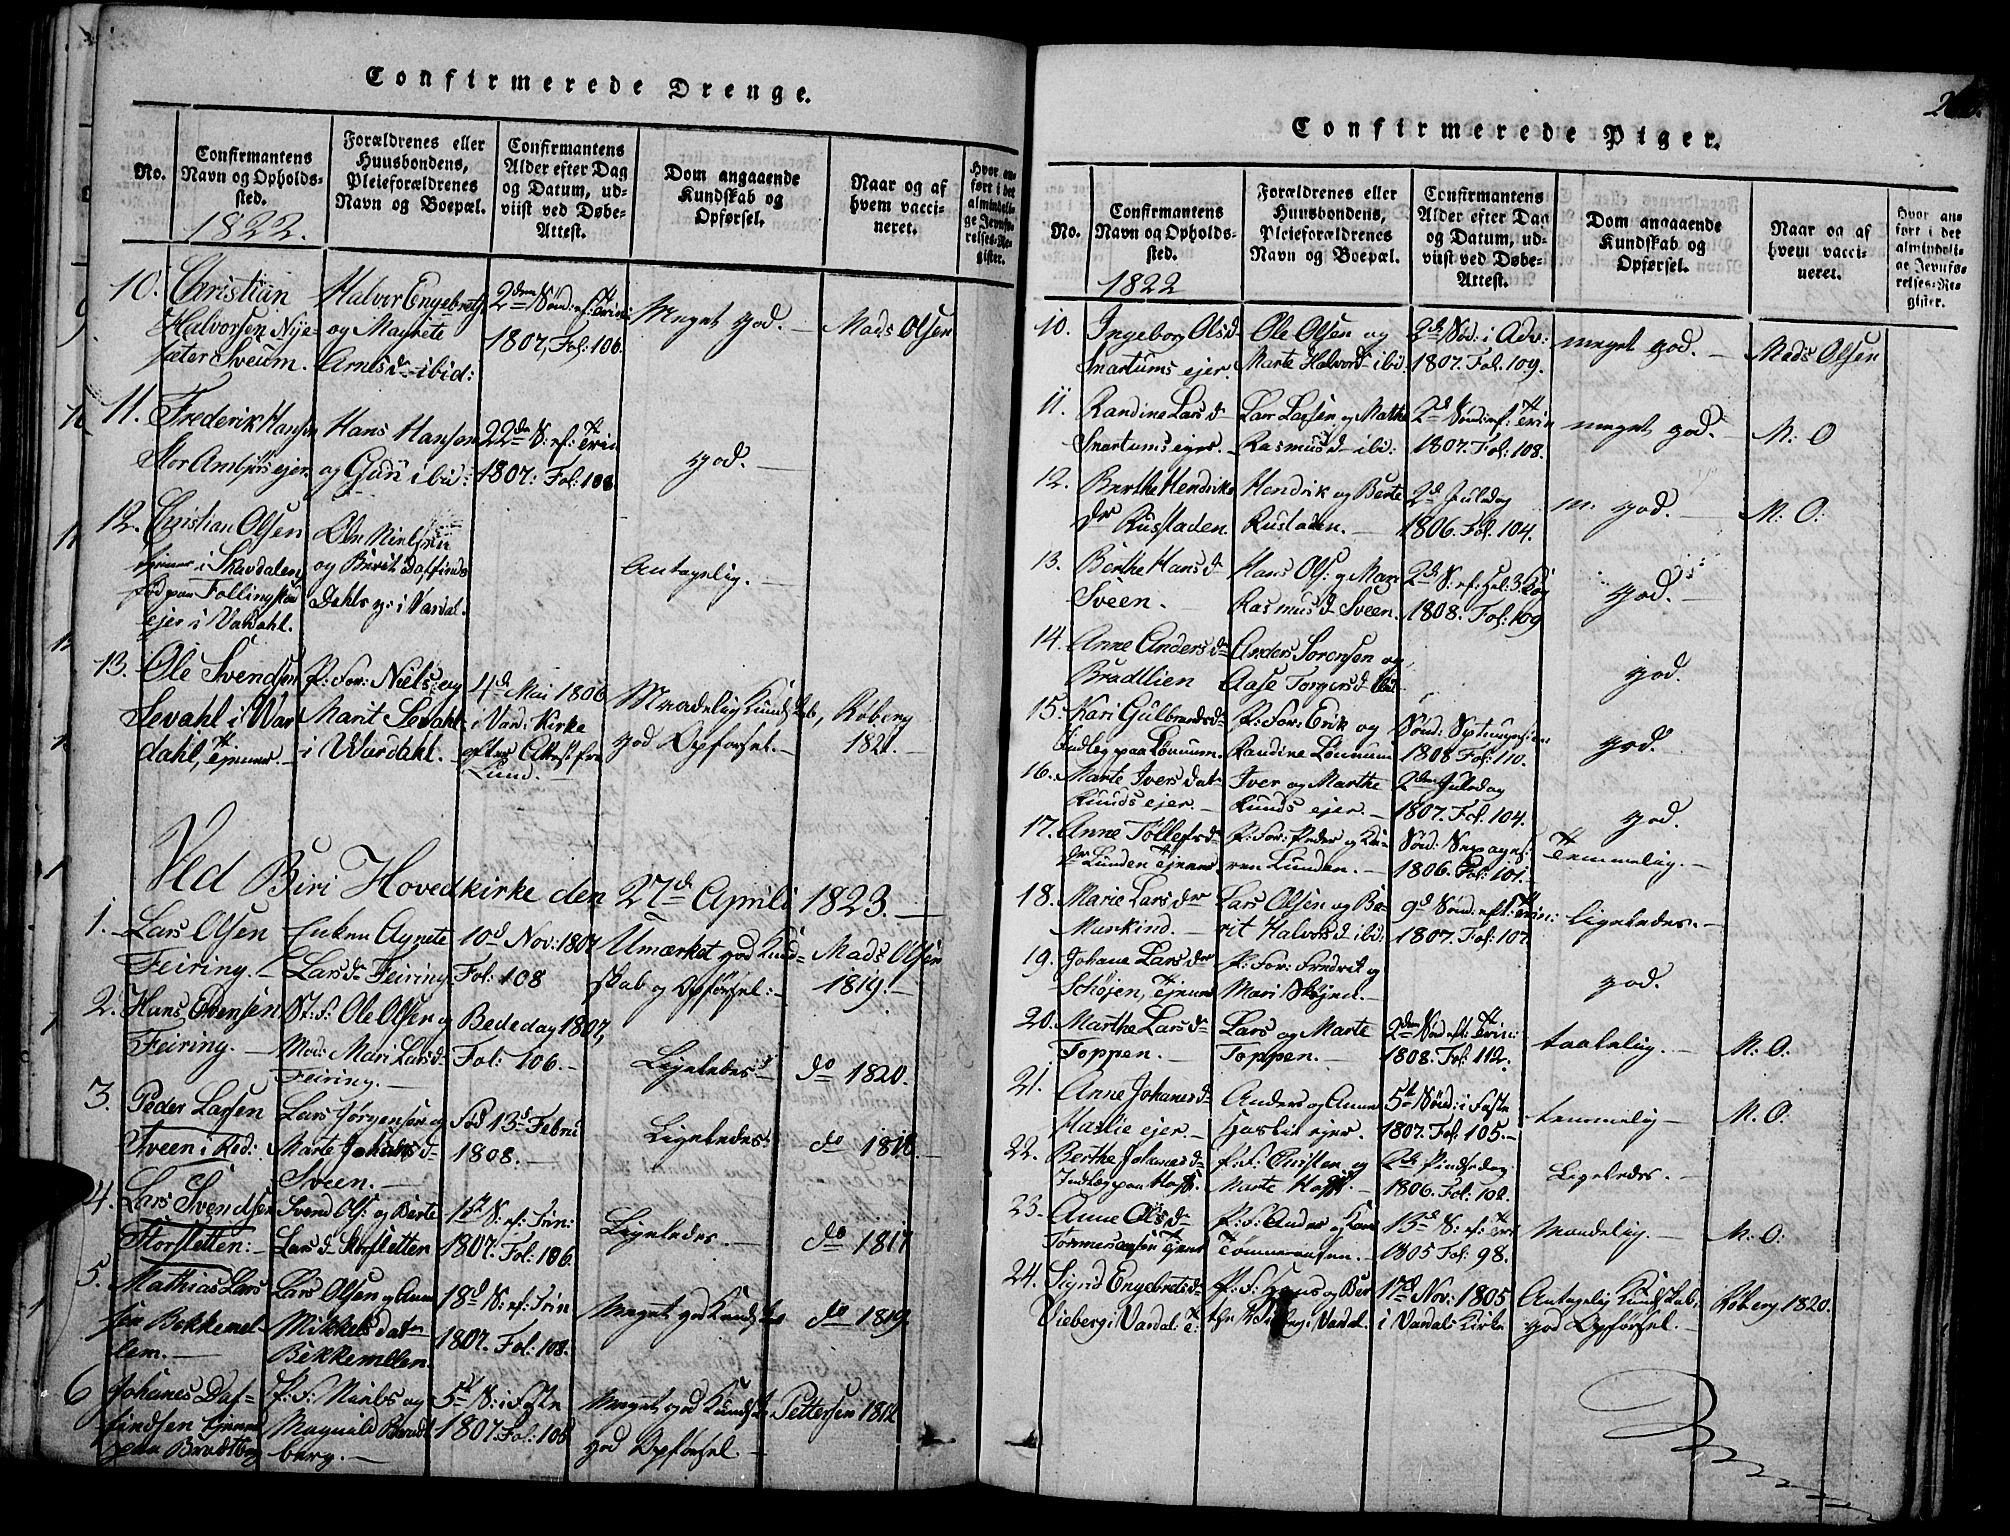 Confirmerede Drenge.
No.
Confirmantens
Navn og Opholds-
sted.
1822.
Forældrenes eller
Huusbondens,
Pleieforældrenes
Navn og Boepæl.
Confirmantens
Alder efter Dag
og Datum, ud-
viist ved Døbe-
Attest.
Dom angaaende
Kundskab og
Opførsel.
Naar og af
hvem vacci-
neret.
Hvor an-
ført i det
almindeli-
ge Jevnfø-
relses-Re-
gister.
10.
Christian
Halvorsen Nye-
sæter Sveum.
Halvor Engebrets.
og Magrete
Arnesd. ibid:
2den Sønd: ef: Trin:
1807, Fol: 106.
Meget god. -
Mads Olsen
11.
Frederik Hansen
Hans Hansen
og Guri ibid:
22de S: ef: Trin
1807: Fol: 108
god. -
12.
Christian Olsen
i Skavdalen,
fød paa
ejer i Vardahl.
Ole Nielsen
og Berit Daffinds
i Vardal.
Antagelig. -
13.
Ole Svendsen
Sevahl i War
dahl, Tjener. -
P: For: Niels og
Marit Sevahl
i Wardahl.
4de Mai 1806
i Vard: Kirke
efter Attest fra
Lund.
Maadelig Kundskab,
god Opførsel. -
Røberg
182. -
Ved Biri Hovedkirke den 27de Aprili 1823. -
1.
Lars Olsen
Feiring. -
Enken Agnete
Larsd. Feiring
10d Nov: 1807
Fol: 108
Umærket god Kund-
skab og Opførsel: -
Mads Olsen
1819. -
2.
Hans Evensen
Feiring. -
St: f: Ole Olsen og
Mod: Mari Larsd.
Feiring. -
Bededag 1807,
Fol: 106. -
Ligeledes -
do 1820.
3.
Peder Larsen
Sveen i Red:
Lars Jørgensen og
Marte Johansd.
Sveen. -
Fød 13d Febru
1808. -
Ligeledes.
do 1818. -
4.
Lars Svendsen
Storsletten: -
Svend Ols: og Berte
Larsd. Storsletten
1st S: ef: Trin:
1807. Fol: 106.
Ligeledes. -
do 1817
5.
Mathias Lars
sen Bekkemel-
lem. -
Lars Olsen og Anne
Mikkelsdat
Bekkemellem
18d S: ef: Trin
1807. Fol: 108.
Meget god Kundskab
do 1819
6
Johanes Daf-
findsen tjener
paa Bradtberg
P: F: Niels og
Magnild Bradt
berg. -
5t S: i Faste
1807. Fol: 105
Meget god Kundsk.
god Opførsel. -
Pettersen 1812
Confirmerede Piger.
No.
Confirmantens
Navn og Opholds-
sted.
1822
Forældrenes eller
Huusbondens,
Pleieforældrenes
Navn og Boepæl.
Confirmantens
Alder efter Dag
og Datum, ud-
viist ved Døbe-
Attest.
Dom angaaende
Kundskab og
Opførsel.
Naar og af
hvem vacci-
neret.
Hvor an-
ført i det
almindeli-
ge Jevnfø-
relses-Re-
gister.
10.
Ingeborg Olsd
Snartums ejer.
Ole Olsen og
Marte Halvord. ibid.
2de Sød: i Adv:
1807. Fol. 109.
meget god. -
Mads Olsen
11.
Randine Larsd
Snartums ejer. -
Lars Larsen og Mathe
Rasmusd. ibi:
2d Sønd: ef: Trin
1807. Fol: 108.
meget god. -
M: O
12.
Berthe Hendriks
dr Rustaden.
Hendrik og Berte
Rustaden. -
2d Juledag
1806. Fol. 104.
m. god. -
M: O:
13.
Berthe Hansd
Sveen. -
Hans Ols: og Mari
Rasmusd. Sveen.
2de S: ef: hel: 3 Kongr
1808. Fol: 109
god. -
14.
Anne Andersd
Bradtlien
Anders Sorensen og
Aase Torgersd. ibid
god.
15.
Kari Gulbrandsd.
Indleg paa Lønnum.
P: For: Erik og
Randine Lønnum
Sønd: Septuages:
1808 Fol: 110.
god. -
16.
Marte Iversdat
Lunds ejer. -
Iver og Marthe
Lunds ejer. -
2den Juledag
1807. Fol. 104.
god.
17.
Anne Tollefsd.
Lunden Tjener
P: For: Peder og Ka-
ren Lunden. -
Sønd: Sexages:
1806. Fol: 101. -
Temmelig. -
18.
Marie Larsdr
Munkind. -
Lars Olsen og Be-
rit Halvorsd. ibid:
9d Sønd: eft: Trin:
1807. Fol: 107.
Ligeledes. -
19.
Johane Larsdr
Schøjen, Tjener
P: For: Fredrik og
Mari Skøjen. -
god.
20.
Marthe Larsd
Toppen. -
Lars og Marte
Toppen. -
2den Sønd: ef: Trin:
1808. Fol: 112.
taalelig. -
M: O:
21.
Anne Johanesd
Haslie ejer. -
Anders og Anne
Haslie ejer.
5t Sønd: i Faste
1807. Fol: 105. -
temmelig -
M. O.
22.
Berthe Johanesd.
Indleg paa Hoff.
P: F: Christen og
Marte Hoff. -
2de Pindsedag
1806. Fol: 102.
Ligeledes. -
23.
Anne Olsd
Tømmeraasen Tjener
P: F: Anders og Kari
Tømmeraasen. -
13d S: ef: Tri
1805 Fol: 98.
Maadelig. -
M: O:
24.
Sigrid Engebretsd.
Vieberg i Vardal. T:
P: F: Hans og Ber
the Vieberg i Vardal.
17d Nov: 1805
i Vardals Kirke
Antagelig Kundskab,
god Opførsel. -
Røberg 1820.